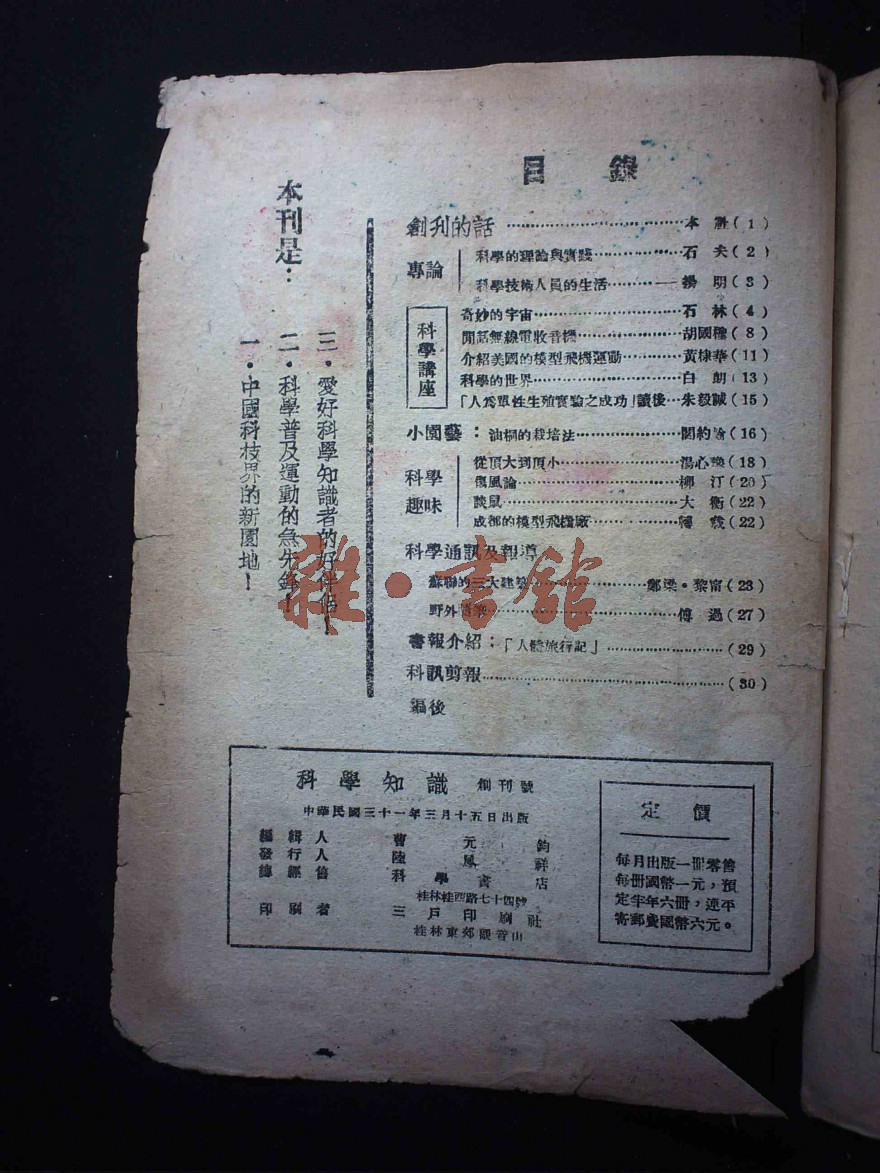 目錄
創刊的話……本社(1)
專論
科學的理論與實踐……石夫(2)
科學技術人員的生活……楊明(3)
科學講座
奇妙的宇宙……石林(4)
閒話無線電收音機……胡國(8)
介紹美國的模型飛機運動……黃棣華(11)
科學的世界……白朗(13)
「人爲單性生殖實驗之成功」讀後…朱毅誠(15)
小園藝:油桐的栽培法……閻約翰(16)
科學趣味
從頂大到頂小……湯心(18)
傷風論……柳汀(20)
談鼠……大衡(22)
成都的模型飛機廠……(22)
科學通訊及報導
蘇聯的三大建築……鄭梁·黎甯(23)
野外……傅過(27)
書報介紹:「人體旅行記」……(29)
科訊剪報……(30)
編後
本刊是:
一·中國科技界的新園地!
二·科學普及運動的急先鋒!
三·愛好科學知識者的好伴侶!
科學知識 創刊號
中華民國三十一年三月十五日出版
編輯人 曹元鈞
發行人 陸鳳祥
總經售 科學書店
桂林桂西路七十四號
印刷者 三戶印刷社
桂林東郊觀音山
定價
每月出版一冊零售
每冊國幣一元,預
定半年六冊,連平
寄郵費國幣六元。
雜·書館